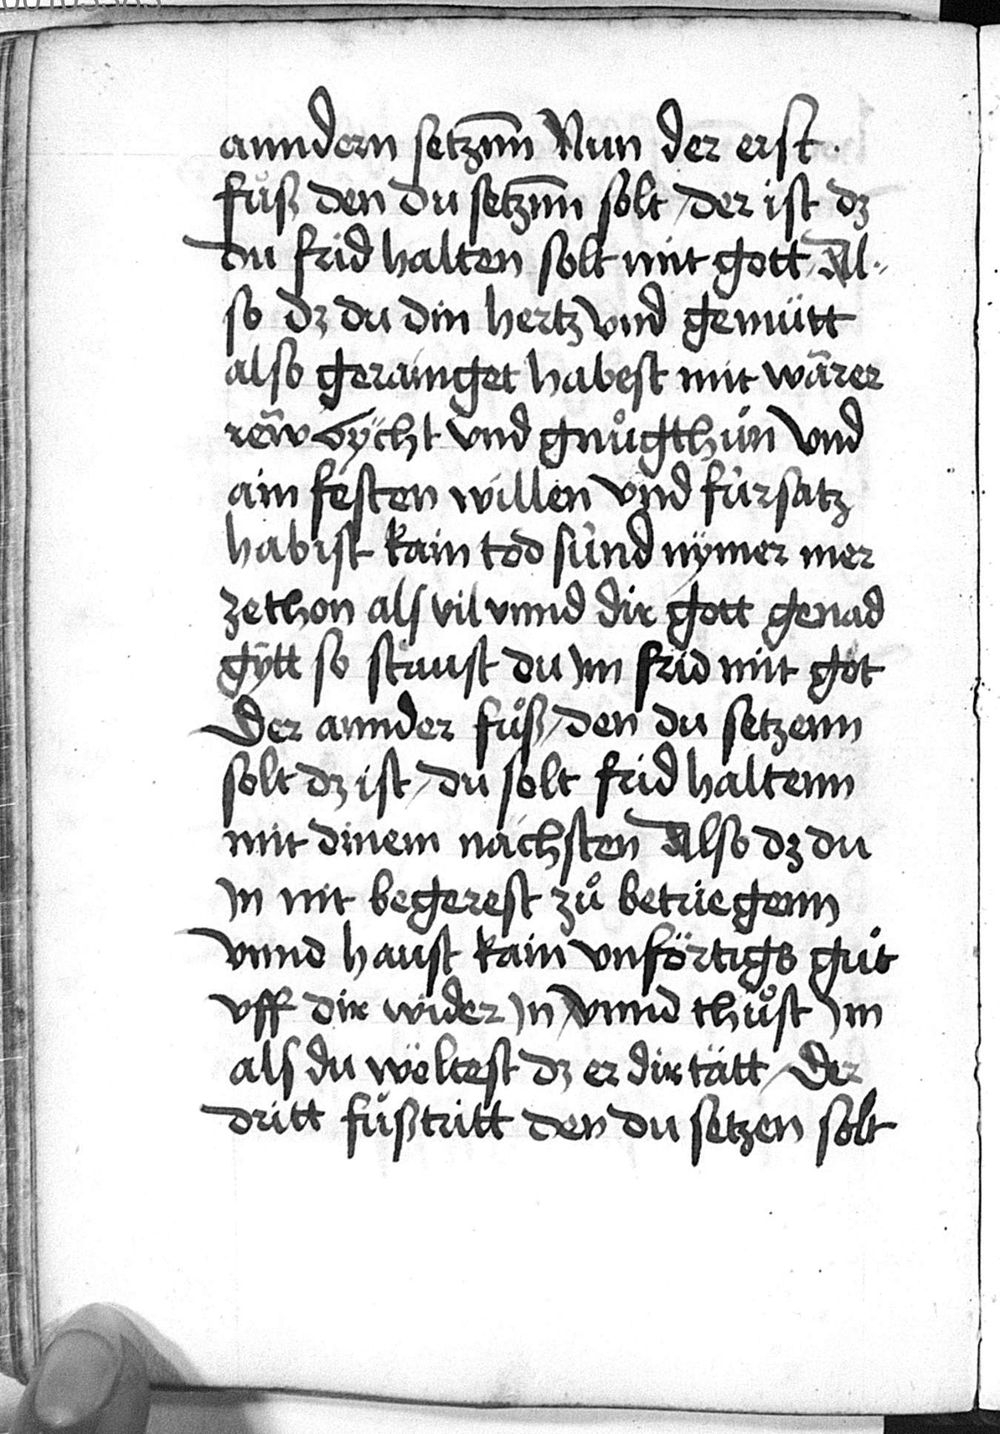 anndern setzñn Nun der erst·
fůß den du setzñn solt / der ist dz
du frid halten solt mit gott / Al-
so dz du din hertz vnd gemütt
also gerainget habest mit wârer
rêw bÿcht vnd gnůgthůn vnd
ain festen willen vnd fürsatz
habist kain tod sünd nÿmer mer
zethon als vil vnnd dir gott genad
gÿtt so staust du Jm frid mit got
Der annder fůß / den du setzenn
solt dz ist / du solt frid haltenn
mit dinem nächsten Also dz du
Jn nit begerest zů betriegenn
vnnd haust kain vnförtigs gůt
vff dir wider Jn / vnnd thůst Jm
als du wöltest dz er dir tätt / Der
dritt fůßtritt den du setzen solt